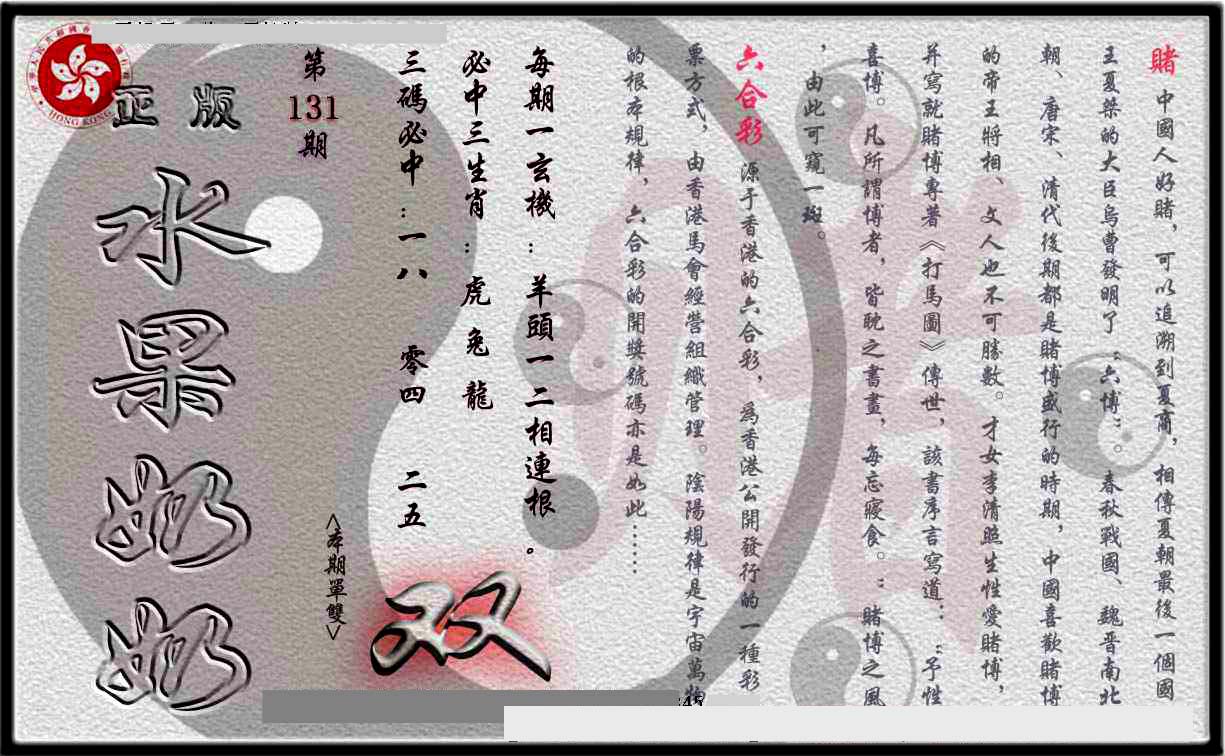 賭 中國人好賭，可以追溯到夏商，相傳夏朝最後一個國
王夏桀的大臣烏曹發明了“六博”。春秋戰國、魏晋南北
朝、唐宋、清代後期都是賭博盛行的時期，中國喜歡賭博
的帝王將相、文人也不可勝數。才女李清照生性愛賭博，
并寫就賭博專著《打馬圖》傳世，該書序言寫道：“予性
喜博。凡所謂博者，皆耽之書畫，每忘寢食。”賭博之風
，由此可窺一斑。
六合彩 源于香港的六合彩，爲香港公開發行的一種彩
票方式，由香港馬會經營組織管理。陰陽規律是宇宙萬物
的根本規律，六合彩的開獎號碼亦是如此……
每期一玄機：羊頭一二相連根。
必中三生肖：虎 兔 龍
三碼必中：一八 零四 二五
<本期單雙>
双
第
131
期
正版
水果奶奶
HONG KONG